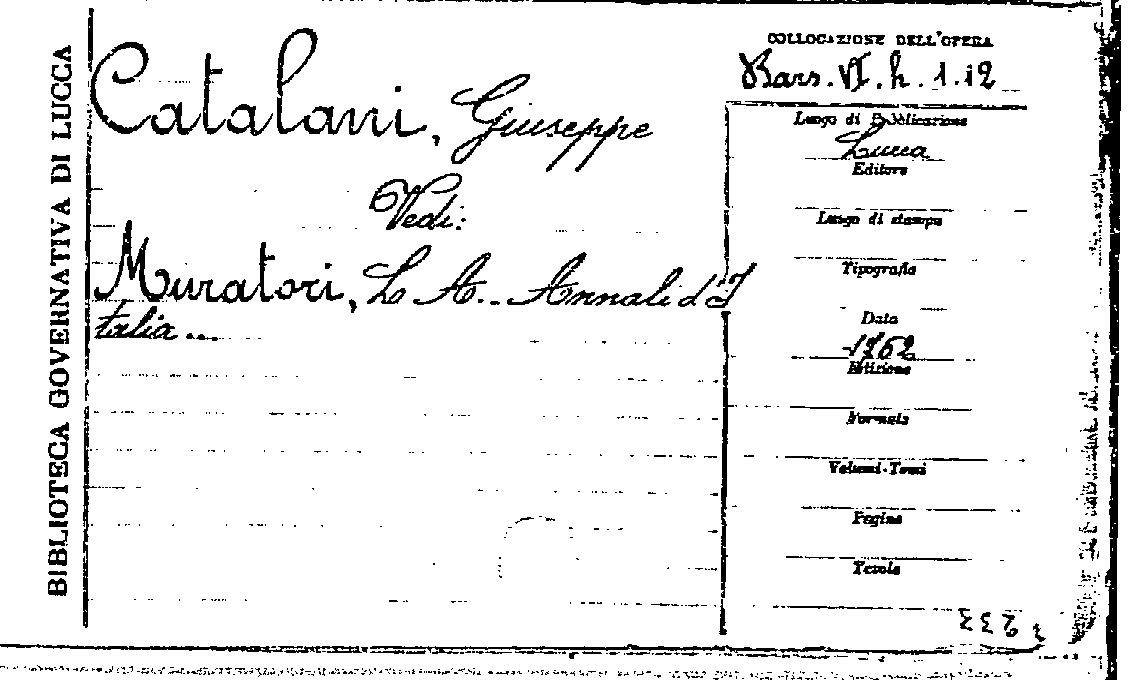 BIBLIOTECA GOVERNATIVA DI LUCCA
Catalani, Giuseppe
Vedi:
Muratori, L. A. - Annali d'I
talia ...
COLLOCAZIONE DELL'OPERA
Bars. VI. h. 1. 12
Luogo di Pubblicazione
Lucca
Editore
Luogo di stampa
Tipografia
Data
1762
Edizione
Formato
Volumi-Tomi
Pagine
Tavole